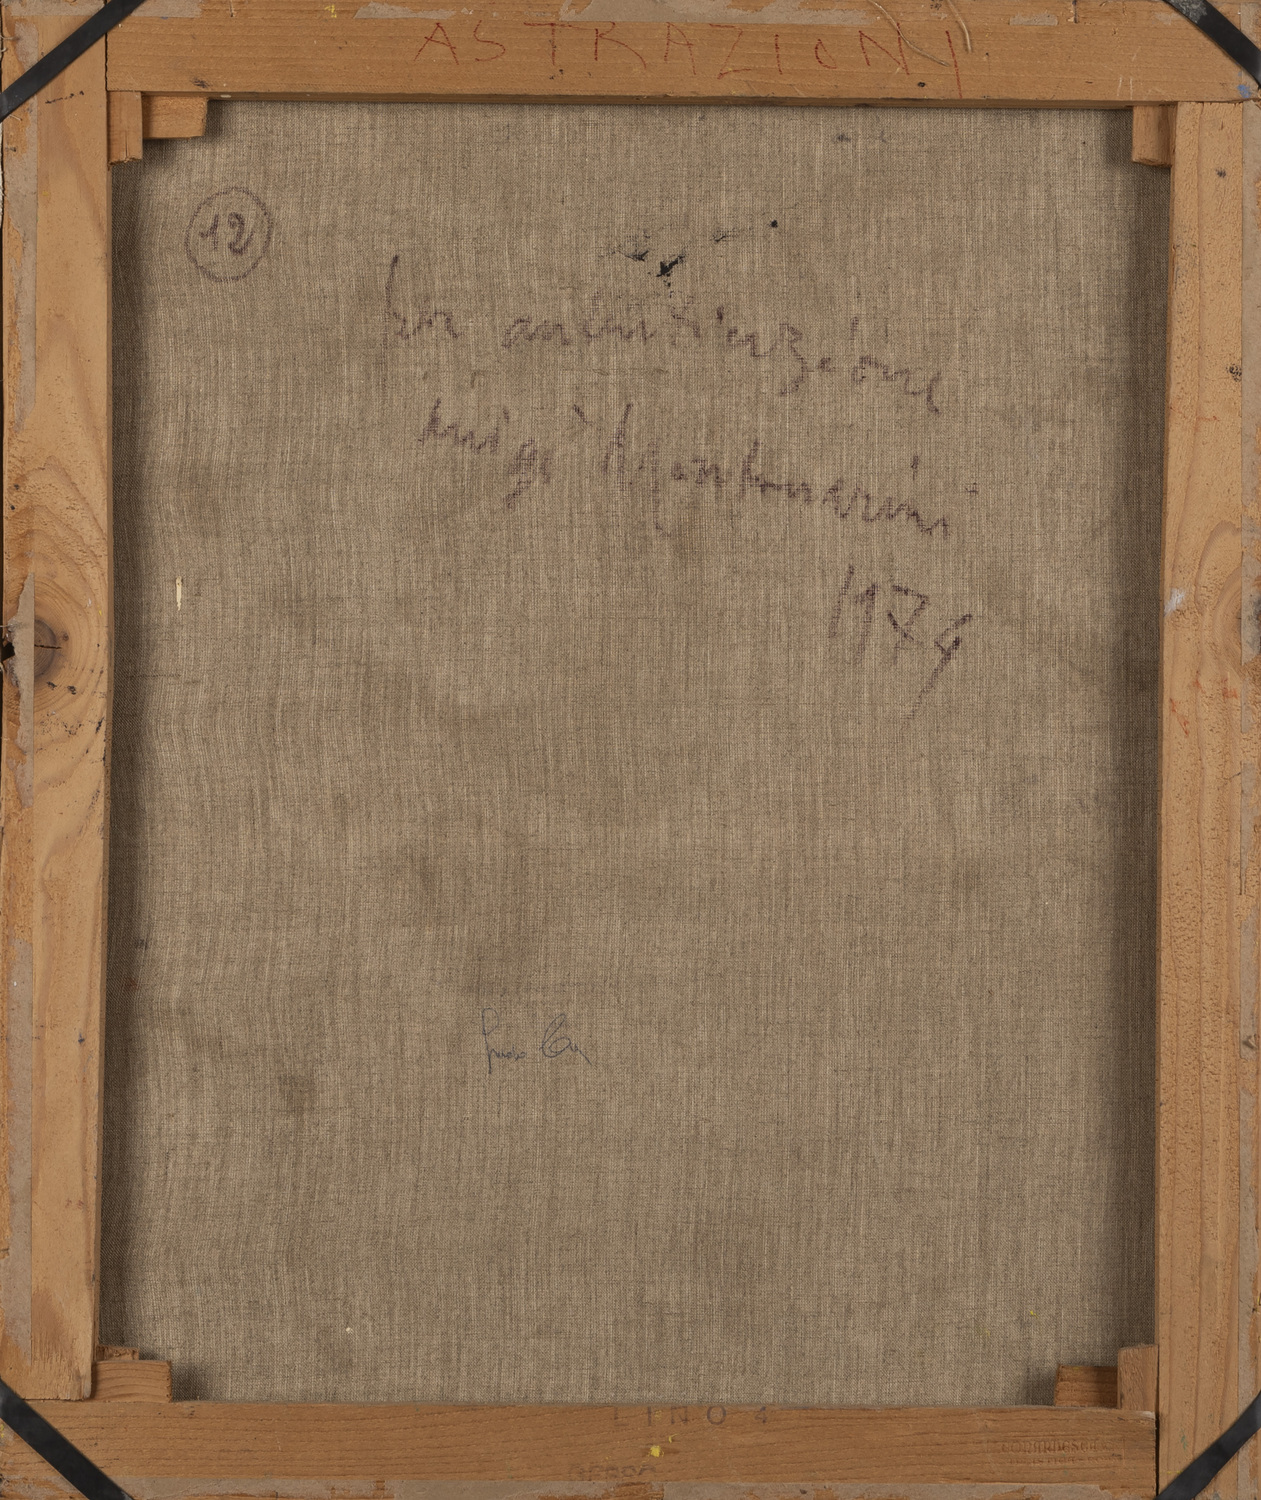 ASTRAZIONI
12
Per autenticazione
Luigi Montanarini
1974
LINO 4